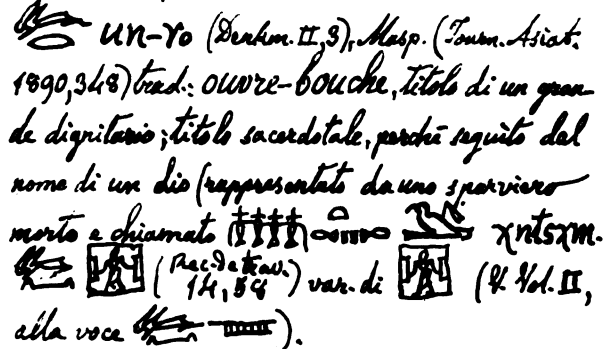 un-ro (Denkm. II, 3), Masp. (Journ. Asiat.
1890, 348) trad.: ouvre-bouche, titolo di un gran-
de dignitario; titolo sacerdotale, perchè seguito dal
nome di un dio (rappresentato da uno sparviero
morto e chiamato χntsχm.
(Rec. de trav. 14, 58) var. di (V. Vol. II,
alla voce ).